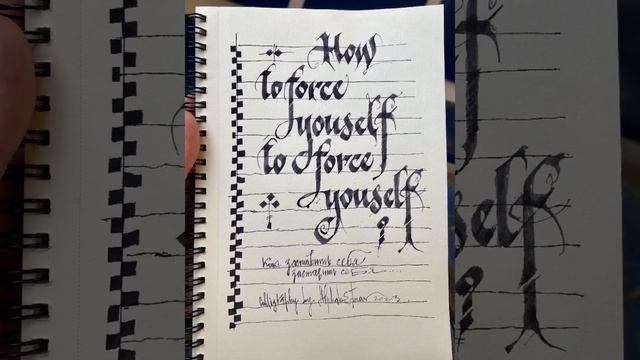 How
to force
youself
to force
youself
?
как заставить себя
заставить себя....
calligraphy by 2023